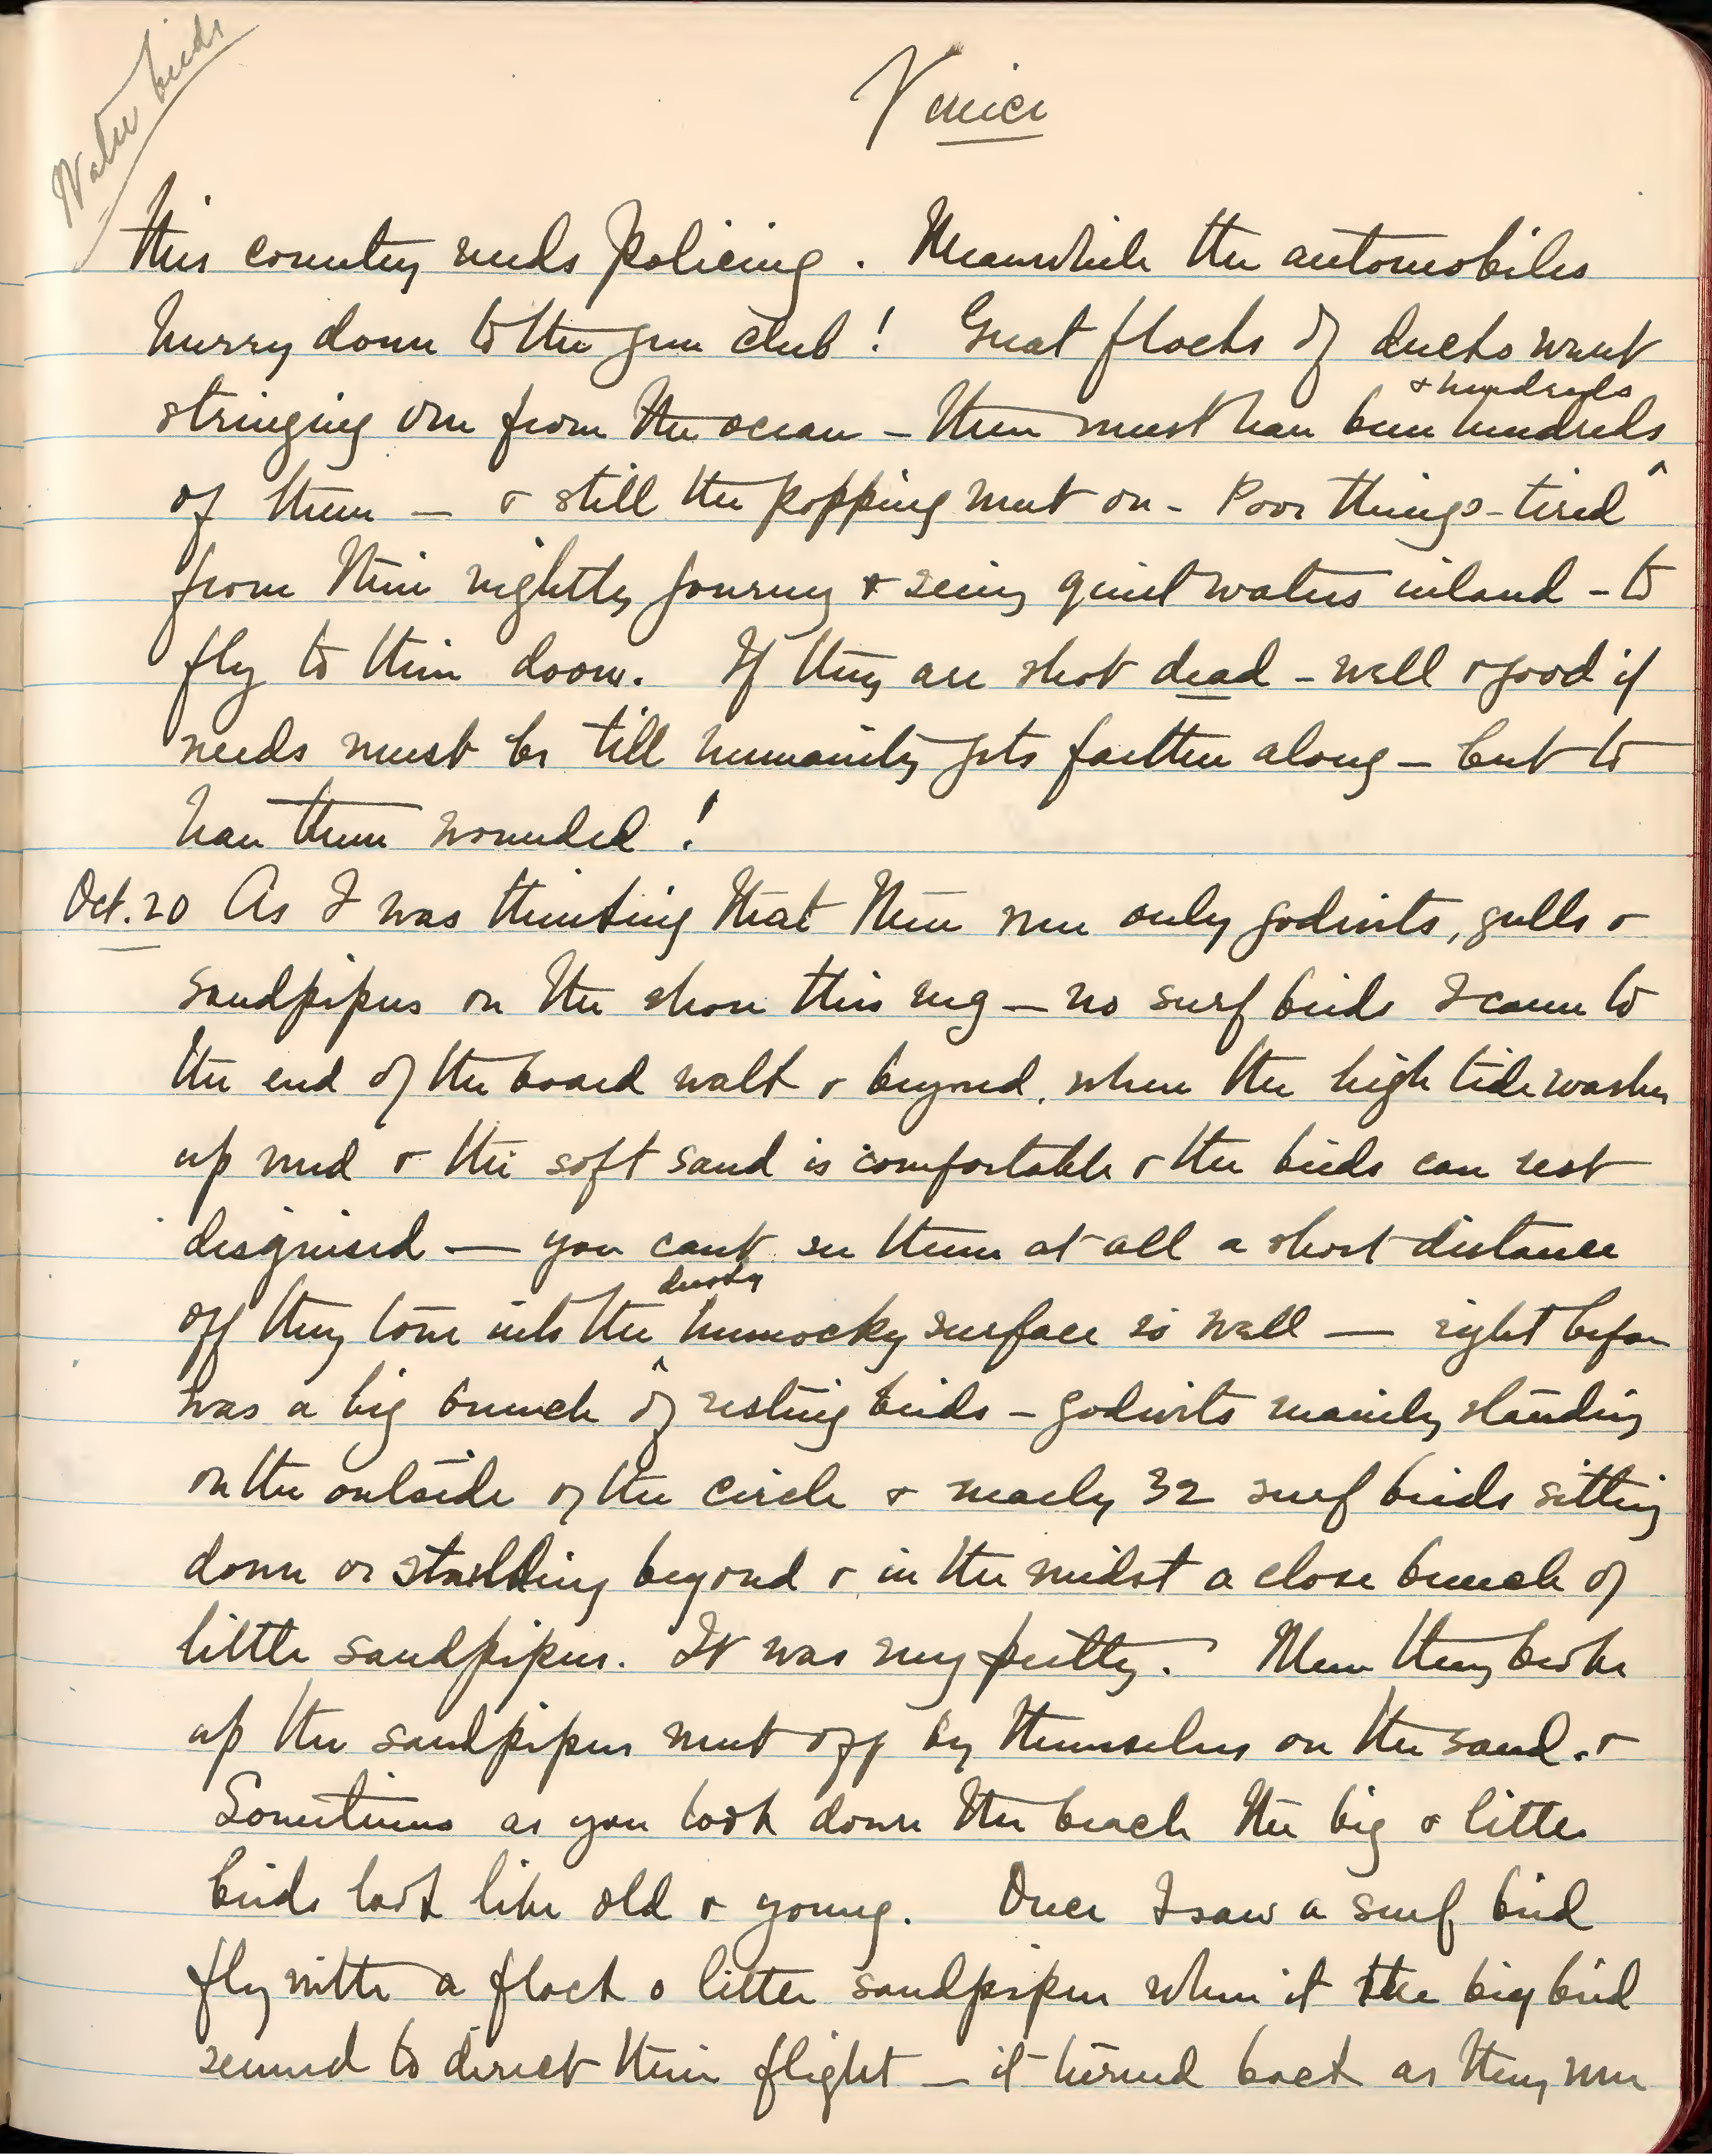 Water birds
Venice
this country needs policing. Meanwhile the automobiles
hurry down to the gun club! Great flocks of ducks went
& hundreds
stringing over from the ocean – there must have been hundreds
of them — & still the popping went on - Poor things - tired
from their nightly journey & seeing quiet waters inland - to
fly to their doom. If they are shot dead - well & good if
needs must be till humanity gets farther along — but to
have them wounded!
Oct. 20 As I was thinking that there were only godwits, gulls &
sandpipers on the shore this mg — no surf birds I came to
the end of the board walk & beyond, where the high tide washes
up mud & the soft sand is comfortable & the birds can rest
disguised — you can't see them at all a short distance
dusky
off they tone into the hummocky surface so well — right before
was a big bunch of resting birds - godwits mainly standing
on the outside of the circle & nearly 32 surf birds sitting
down or standing beyond & in the midst a close bunch of
little sandpipers. It was very pretty. When they broke
up the sandpipers went off by themselves on the sand. &
Sometimes as you look down the beach the big & little
birds look like old & young. Once I saw a surf bird
fly with a flock o little sandpipers when it the big bird
seemed to direct their flight — it turned back as they were